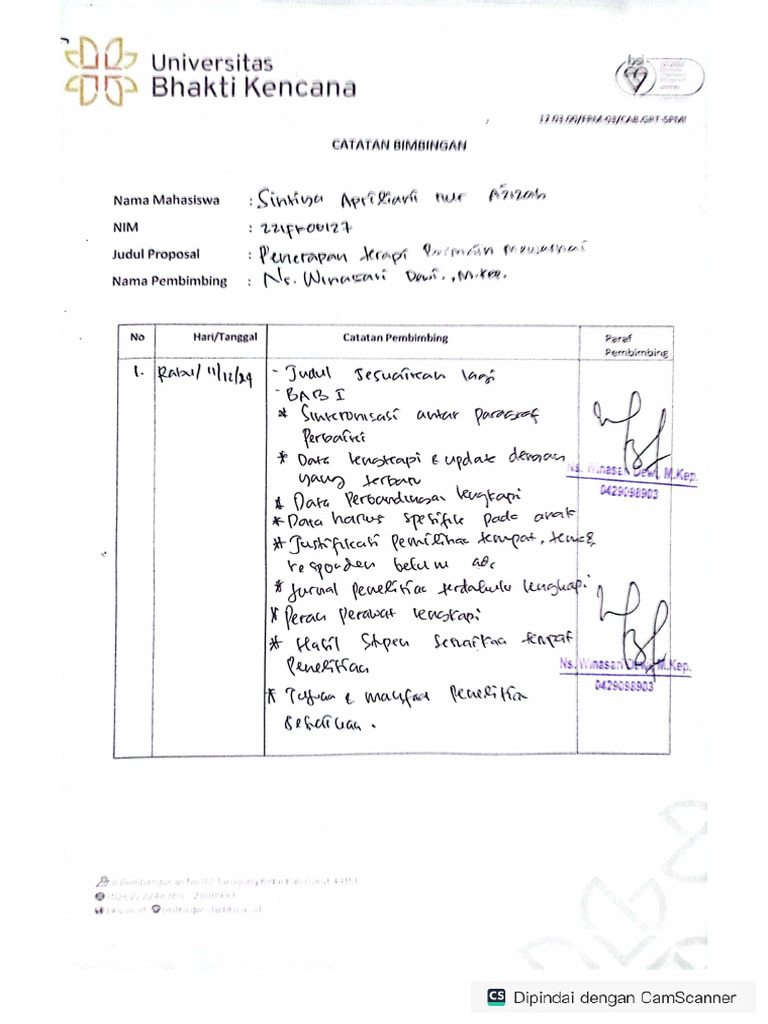 Universitas
Bhakti Kencana
bsi
CATATAN BIMBINGAN
Nama Mahasiswa : Sintiya Apriliani nur Azizah
NIM :
Judul Proposal : Penerapan terapi Bermain Mewarnai
Nama Pembimbing : Ns. Winasari Dewi., M.Kep.
No Hari/Tanggal Catatan Pembimbing Paraf Pembimbing
1. Rabu/ 11/12/24 - Judul sesuaikan lagi
- BAB I
* Sinkronisasi antar paragraf
Perbaiki
* Data lengkapi & update dengan
yang terbaru
* Data Perbandingan lengkapi
* Data harus spesifik pada anak
* Justifikasi Pemilihan tempat,
responden belum
* Jurnal penelitian terdahulu lengkapi
* Peran perawat lengkapi
* Hasil Stupen sesuaikan tempat
Penelitian
* Tujuan & manfaat Penelitian
Ns. Winasari Dewi, M.Kep.
0429098903
Ns. Winasari Dewi, M.Kep.
0429098903
CS Dipindai dengan CamScanner